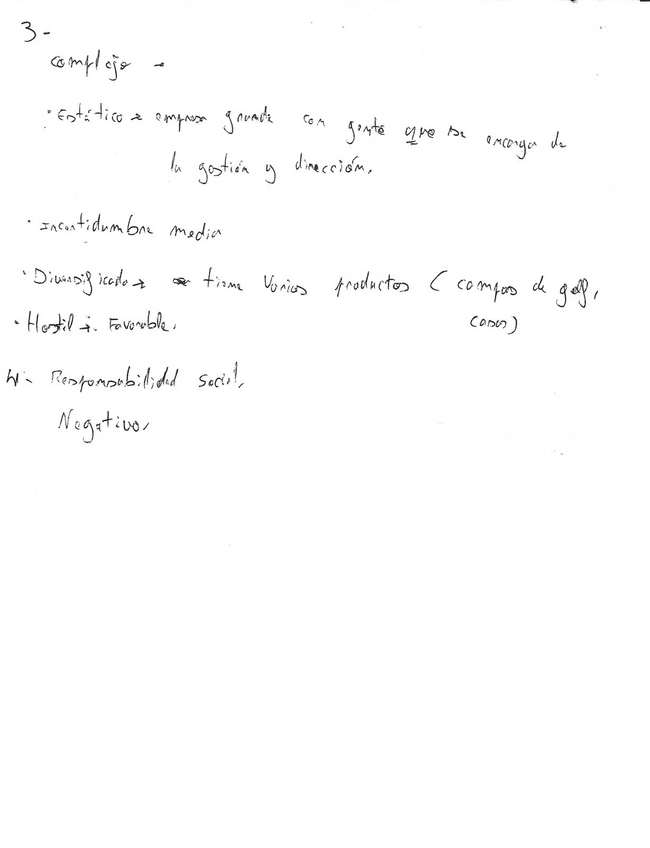 3-
complejo →
· Estático → empresa grande con gente que se encarga de
la gestión y dirección.
· Incertidumbre media
· Diversificado → tiene varios productos (campos de golf,
casas)
· Hostil → Favorable.
4- Responsabilidad social.
Negativo.